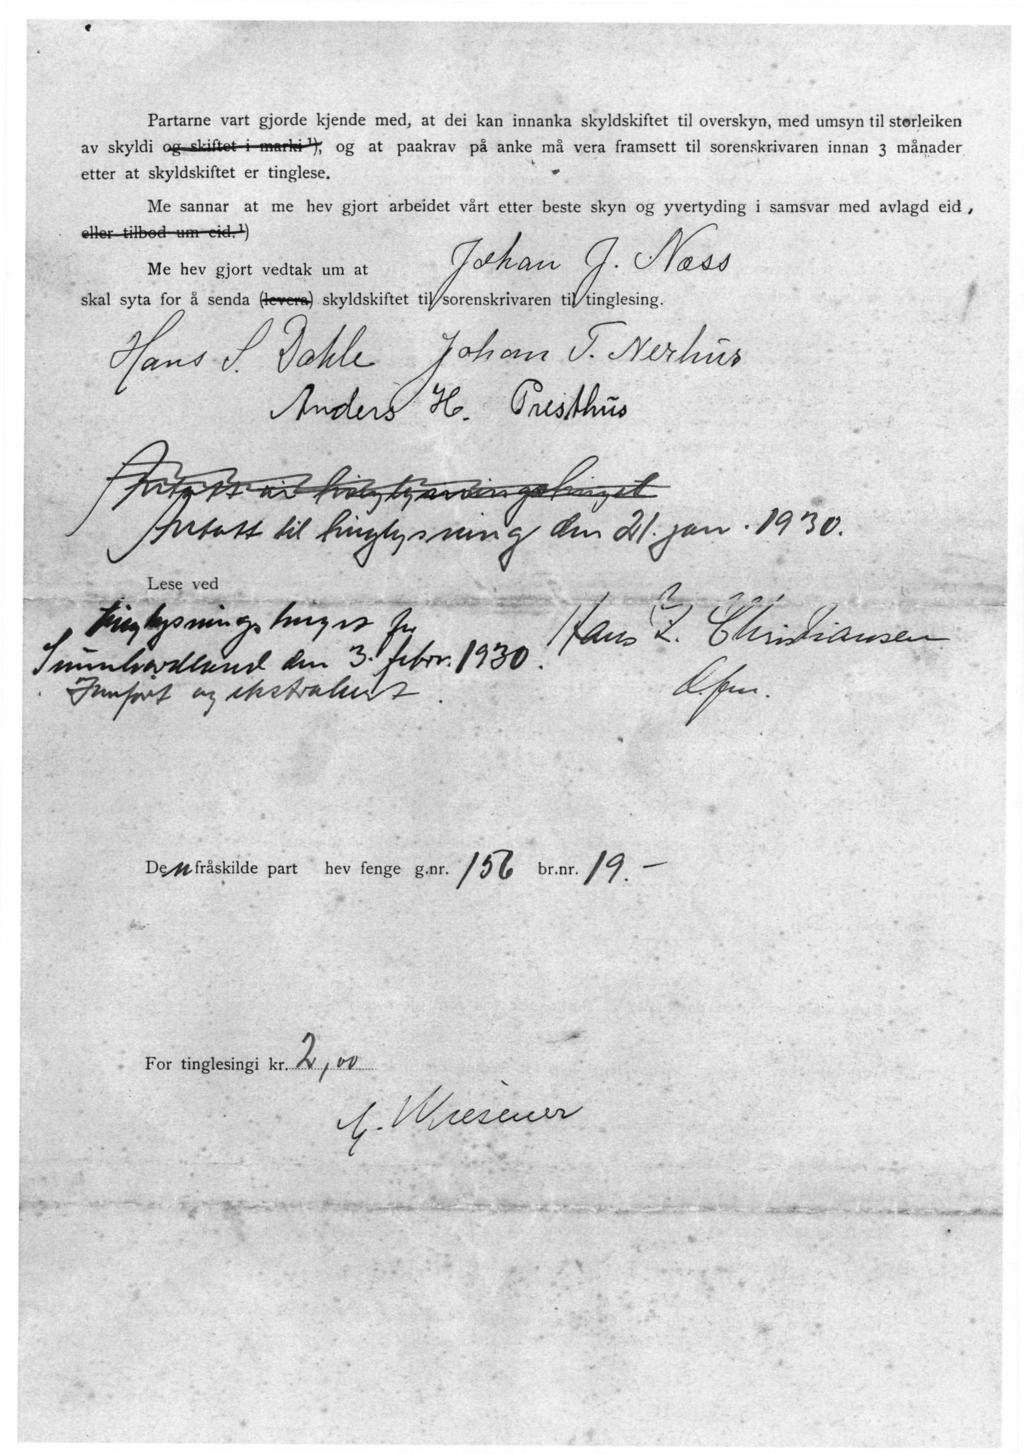 Partarne vart gjorde kjende med, at dei kan innanka skyldskiftet til overskyn, med umsyn til storleiken
av skyldi og skiftet i marki ¹); og at paakrav på anke må vera framsett til sorenskrivaren innan 3 månader
etter at skyldskiftet er tinglese.
Me sannar at me hev gjort arbeidet vårt etter beste skyn og yvertyding i samsvar med avlagd eid,
eller tilbod um eid.¹)
Me hev gjort vedtak um at Johan J. Næss
skal syta for å senda (levera) skyldskiftet til sorenskrivaren til tinglesing.
Hans S. Dahle Johan T. Nerhus
Anders H. Presthus
Antatt til tinglysning den 21. jan. 1930.
Lese ved
tinglysningstinget for
Sunnhordland den 3. febr. 1930.
Jamført og ekstrahert.
Hans Z. Christiansen
Den fråskilde part hev fenge g.nr. 156 br.nr. 19. –
For tinglesingi kr. 2,00
Wiesener